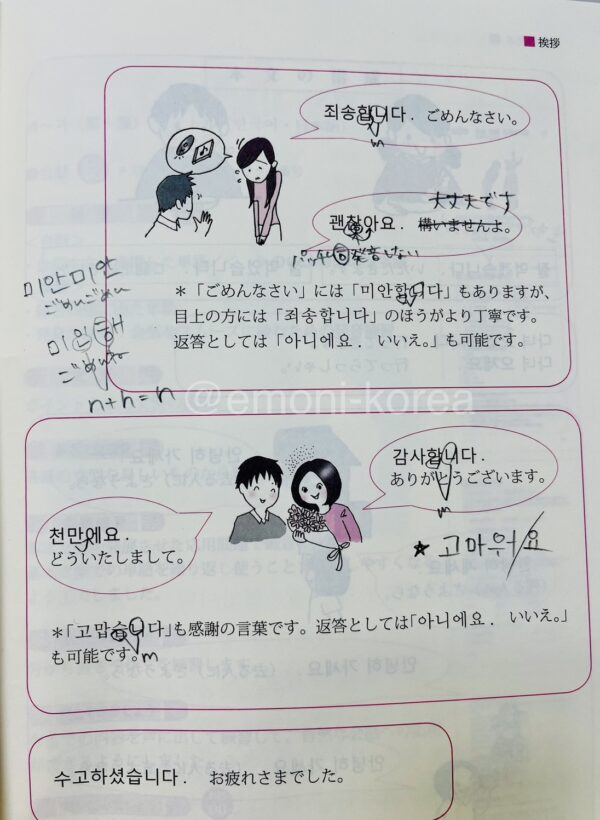 挨拶
죄송합니다. ごめんなさい。
m
大丈夫です
괜찮아요. 構いませんよ。
パッチム 発音しない
미안미안
ごめんごめん
미안해
ごめんね
n+h=n
＊「ごめんなさい」には「미안합니다」もありますが、
目上の方には「죄송합니다」のほうがより丁寧です。
返答としては「아니에요. いいえ。」も可能です。
@emoni-korea
감사합니다.
ありがとうございます。
m
천만에요.
どういたしまして。
★ 고마워/요
＊「고맙습니다」も感謝の言葉です。返答としては「아니에요. いいえ。」
も可能です。
m
수고하셨습니다. お疲れさまでした。